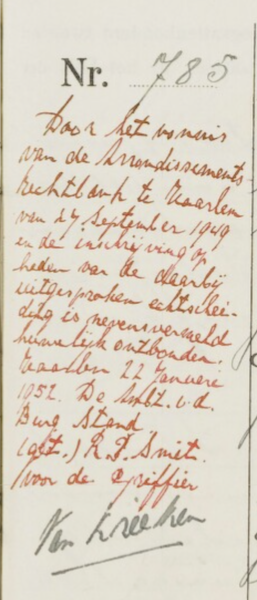 Nr. 785
Door het vonnis
van de Arrondissements
Rechtbank te Haarlem
van 27 September 1949
en de inschrijving op
heden van de daarbij
uitgesproken echtschei-
ding is nevensvermeld
huwelijk ontbonden.
Haarlem 22 Januari
1952. De Ambt. v.d.
Burg. Stand,
(get.) R. P. Smit.
Voor de Griffier